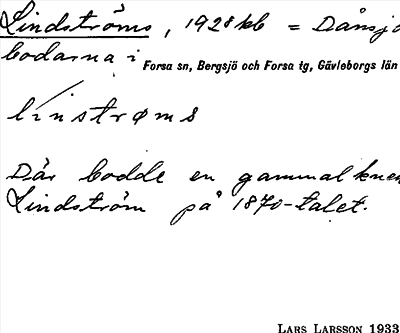 Lindströms, 1928 kb = Dånsjö
bodarna i Forsa sn, Bergsjö och Forsa tg, Gävleborgs län
linstrøms
Där bodde en gammal knek
Lindström på 1870-talet.
LARS LARSSON 1933